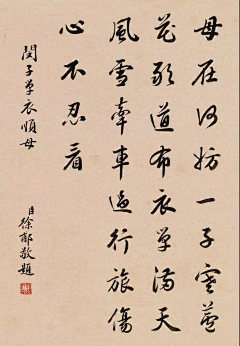 母在何妨一子寒蘆
花敢道布衣單滿天
風雪牽車過行旅傷
心不忍看
閔子單衣順母
臣徐郙敬題